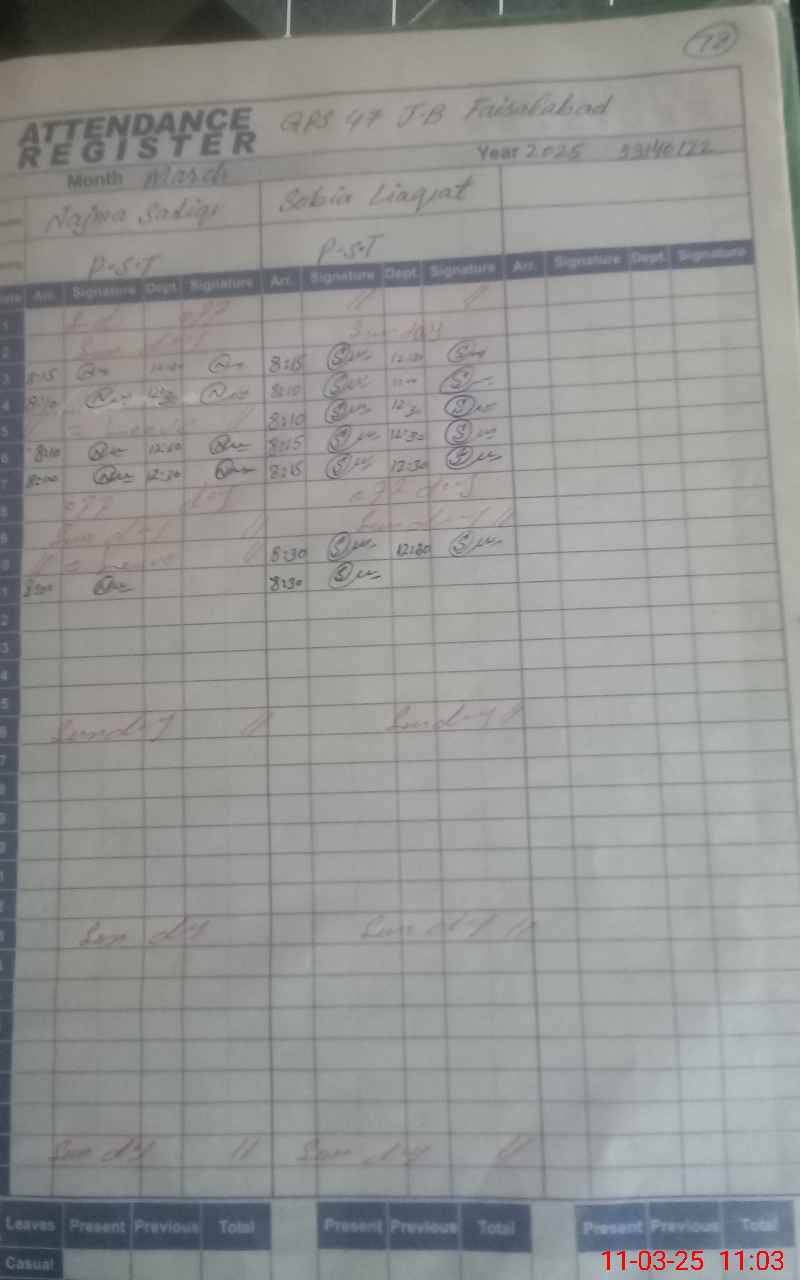 78
ATTENDANCE REGISTER GPS 47 J-B Faisalabad
Year 2025 33140122
Month March
Najma Sadiqi Sobia Liaqat
P-S-T P-S-T
Arr. Signature Dept. Signature Arr. Signature Dept. Signature Arr. Signature Dept. Signature
1 off // //
2 Sun day Sun day
3 8:15 8:15 12:30
4 8:10 8:10
5 8:10 12:30
6 8:10 12:30 8:15 12:30
7 8:00 12:30 8:15 12:30
8 off day off day
9 Sun day // Sun day //
0 Leave // 8:30 12:30
1 8:00 8:30
2
3
4
5
6 Sunday // Sunday //
7
8
9
0
1
2
3 Sun day Sun day //
4
Sun day // Sun day //
Leaves Present Previous Total Present Previous Total Present Previous Total
Casual
11-03-25 11:03